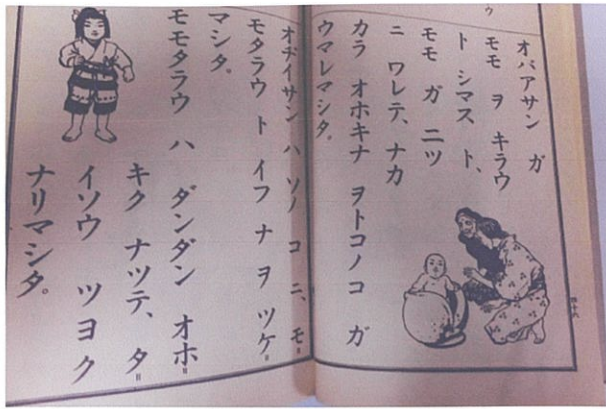 ウ
オバアサン ガ
モモ ヲ キラウ
ト シマス ト、
モモ ガ ニツ
ニ ワレテ、ナカ
カラ オホキナ ヲトコノコ ガ
ウマレマシタ。
オヂイサン ハ ソノ コ ニ、モ＝
モタラウ ト イフ ナ ヲ ツケ＝
マシタ。
モモタラウ ハ ダンダン オホ＝
キク ナツテ、タ＝
イソウ ツヨク
ナリマシタ。
四十六